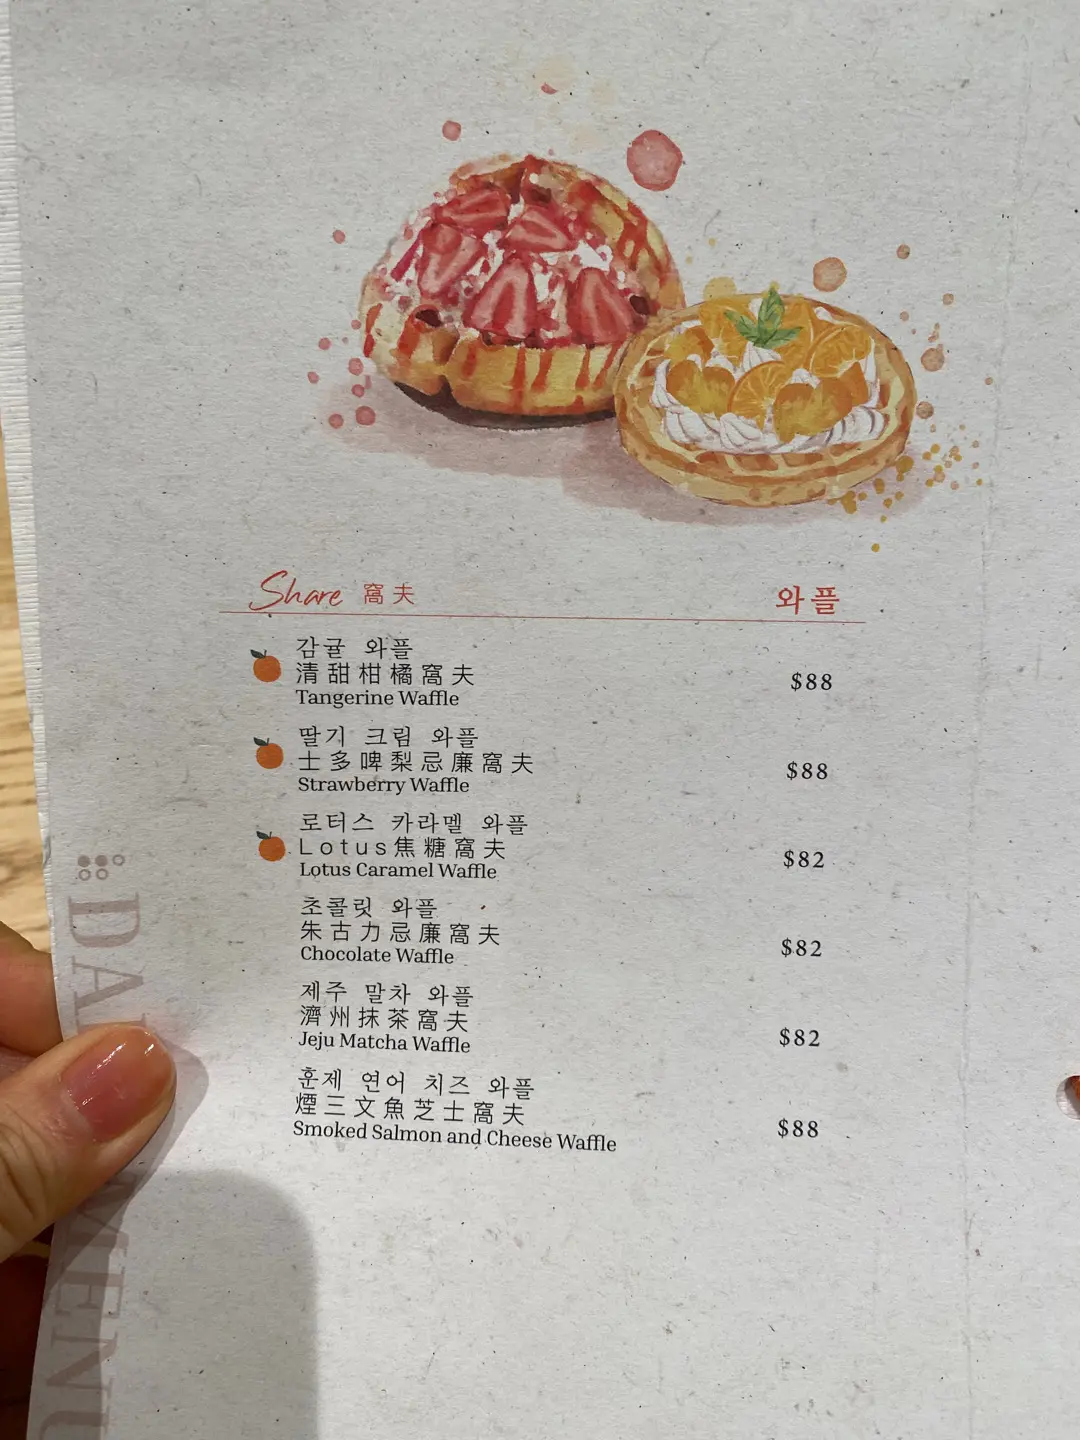 Share 窩夫 와플
감귤 와플
清甜柑橘窩夫
Tangerine Waffle
$88
딸기 크림 와플
士多啤梨忌廉窩夫
Strawberry Waffle
$88
로터스 카라멜 와플
Lotus焦糖窩夫
Lotus Caramel Waffle
$82
초콜릿 와플
朱古力忌廉窩夫
Chocolate Waffle
$82
제주 말차 와플
濟州抹茶窩夫
Jeju Matcha Waffle
$82
훈제 연어 치즈 와플
煙三文魚芝士窩夫
Smoked Salmon and Cheese Waffle
$88